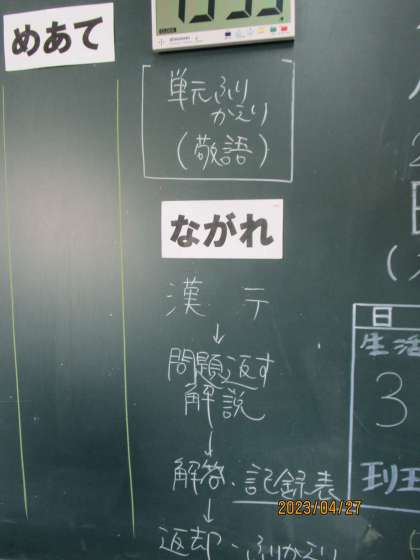 めあて
単元ふり
かえり
(敬語)
ながれ
漢 テ
↓
問題返す
解説
↓
解答・記録表
↓
返却・ふりかえり
日
生活
3
班
2023/04/27